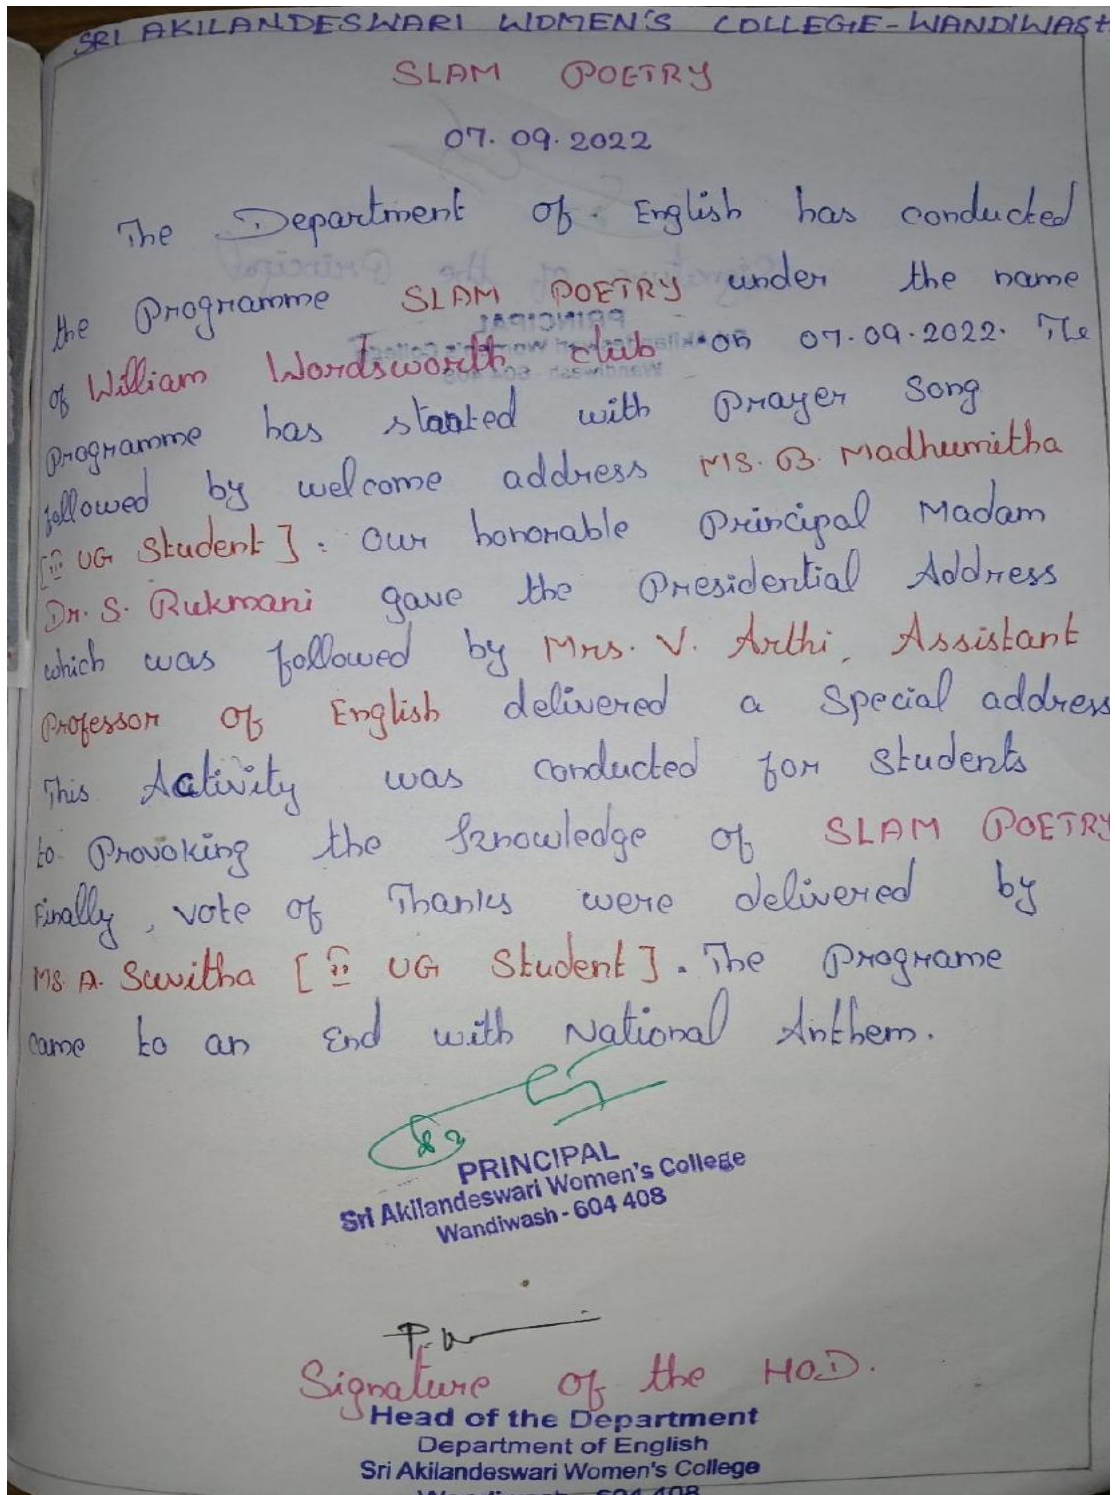 SRI AKILANDESWARI WOMEN'S COLLEGE - WANDIWASH
SLAM POETRY
07.09.2022
The Department of English has conducted
the Programme SLAM POETRY under the name
of William Wordsworth club on 07.09.2022. The
Programme has started with Prayer Song
followed by welcome address MS. B. Madhumitha
UG Student]. Our honorable Principal Madam
Dr. S. Rukmani gave the Presidential Address
which was followed by Mrs. V. Arthi, Assistant
Professor of English delivered a Special address
This Activity was conducted for Students
to Provoking the Knowledge of SLAM POETRY
Finally, vote of Thanks were delivered by
MS. A. Suvitha [ UG Student]. The Programe
came to an End with National Anthem.
PRINCIPAL
Sri Akilandeswari Women's College
Wandiwash - 604 408
Signature of the H.O.D.
Head of the Department
Department of English
Sri Akilandeswari Women's College
Wandiwash - 604 408